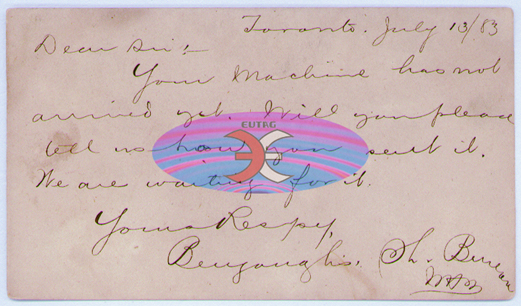 Toronto. July 13/83
Dear Sir:
Your Machine has not
arrived yet. Will you please
EUTRG
tell us how you sent it.
We are waiting for it.
Yours Respy,
Bengough's. Sh. Bureau